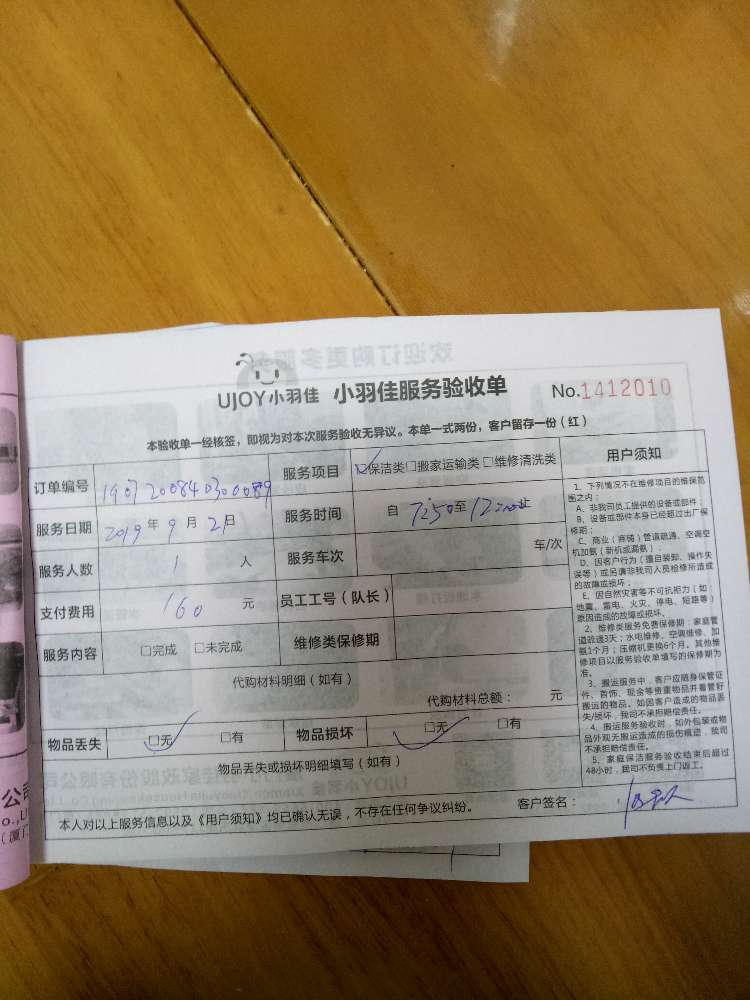 UJOY小羽佳 小羽佳服务验收单 No.1412010
本验收单一经核签，即视为对本次服务验收无异议。本单一式两份，客户留存一份（红）
订单编号 服务项目 ☑保洁类□搬家运输类□维修清洗类
服务日期 2019年9月21日 服务时间 自 7:50至12:00止
服务人数 1 人 服务车次 车/次
支付费用 160 元 员工工号（队长）
服务内容 □完成 □未完成 维修类保修期
代购材料明细（如有）
代购材料总额： 元
物品丢失 ☑无 □有 物品损坏 ☑无 □有
物品丢失或损坏明细填写（如有）
本人对以上服务信息以及《用户须知》均已确认无误，不存在任何争议纠纷。 客户签名：
用户须知
1、下列情况不在维修项目的维保范
围之内：
A、非我司员工提供的设备或部件；
B、设备或部件本身已经超过出厂保
修期；
C、商业（商铺）管道疏通、空调空
机加氨（新机或漏氨）
D、因客户行为（擅自装卸、操作失
误等）或另请非我司人员检修所造成
的故障或损坏；
E、因自然灾害等不可抗拒力（如：
地震、雷电、火灾、停电、短路等）
原因造成的故障或损坏。
2、维修类服务免费保修期：家庭管
道疏通3天；水电维修、空调维修、加
氨1个月；压缩机更换6个月。其他维
修项目以服务验收单填写的保修期为
准。
3、搬运服务中，客户应随身保管证
件、首饰、现金等贵重物品并看管好
搬运的物品。如因客户造成的物品丢
失/损坏，我司不承担赔偿责任。
4、搬运服务验收时，如外包装或物
品外观无搬运造成的损伤痕迹，我司
不承担赔偿责任。
5、家庭保洁服务验收结束后超过
48小时，我司不负责上门返工。
公司
（厦门